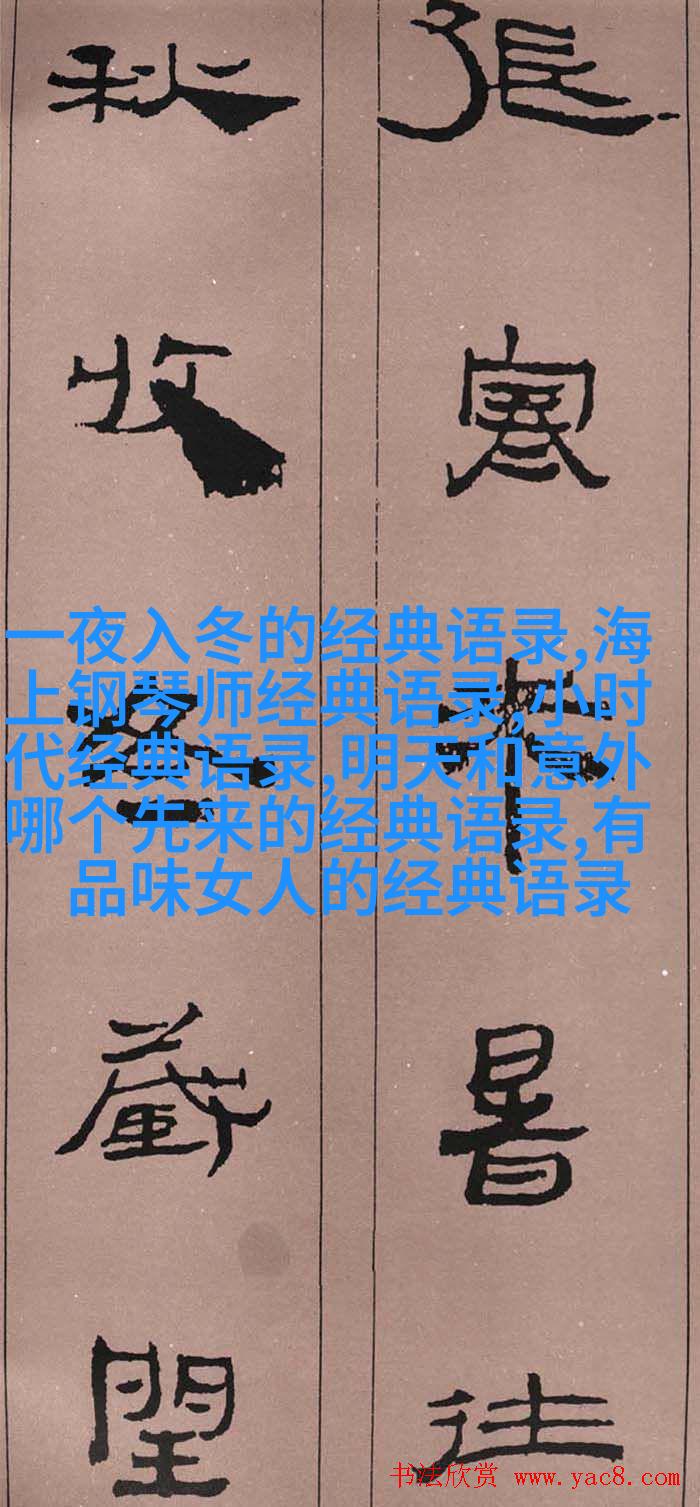 張寒來暑往
秋收冬藏閏
一夜入冬的经典语录,海
上钢琴师经典语录,小时
代经典语录,明天和意外
哪个先来的经典语录,有
品味女人的经典语录
书法欣赏 www.yac8.com